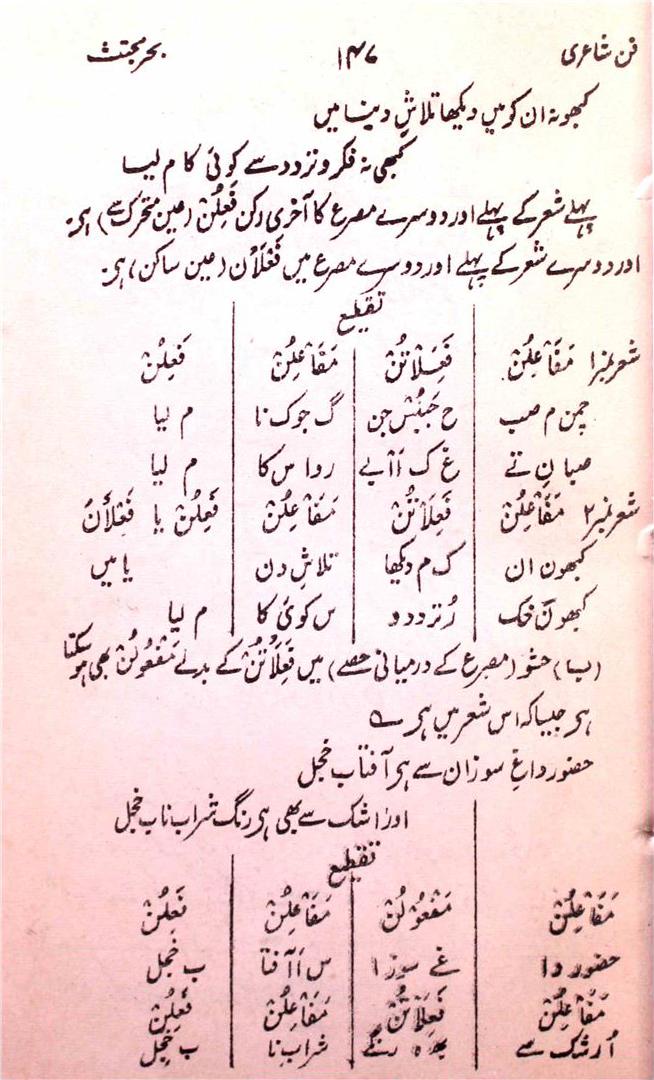 فن شاعری ۱۴۷ بحر مجتث
کبھو نہ ان کو میں دیکھا تلاشِ دنیا میں
کبھی نہ فکر و تردد سے کوئی کام لیا
پہلے شعر کے پہلے اور دوسرے مصرع کا آخری رکن فَعِلُنْ (عین متحرک سے) ہی۔
اور دوسرے شعر کے پہلے اور دوسرے مصرع میں فَعْلَانْ (عین ساکن) ہی۔
تقطیع
شعر نمبر ۱ مَفَاعِلُنْ فَعِلَاتُنْ مَفَاعِلُنْ فَعِلُنْ
چمن م صب ح جَبِنُش جن گ جو ک نا م لیا
صبا نِ تے غ ک اٰابے روا س کا م لیا
شعر نمبر ۲ مَفَاعِلُنْ فَعِلَاتُنْ مَفَاعِلُنْ فَعِلُنْ یا فَعْلَانْ
کبھون ان ک م دیکھا تلاشِ دن یا میں
کبھون فک رُ تردد و س کوئی کا م لیا
(ب) حشو (مصرع کے درمیانی حصے) میں فَعِلَاتُنْ کے بدلے مَفْعُولُنْ بھی ہو سکتا
ہی جیسا کہ اس شعر میں ہی ؎
حضور داغِ سوزان سے ہی آفتاب خجل
اور اشک سے بھی ہی رنگ شراب ناب خجل
تقطیع
مَفَاعِلُنْ مَفْعُوْلُنْ مَفَاعِلُنْ فَعِلُنْ
حضور دا غے سوزا س اٰافتا ب خجل
مَفَاعِلُنْ فَعِلَاتُنْ مَفَاعِلُنْ فَعِلُنْ
اُر شک سے بھ ہ رنگے شراب نا ب خجل